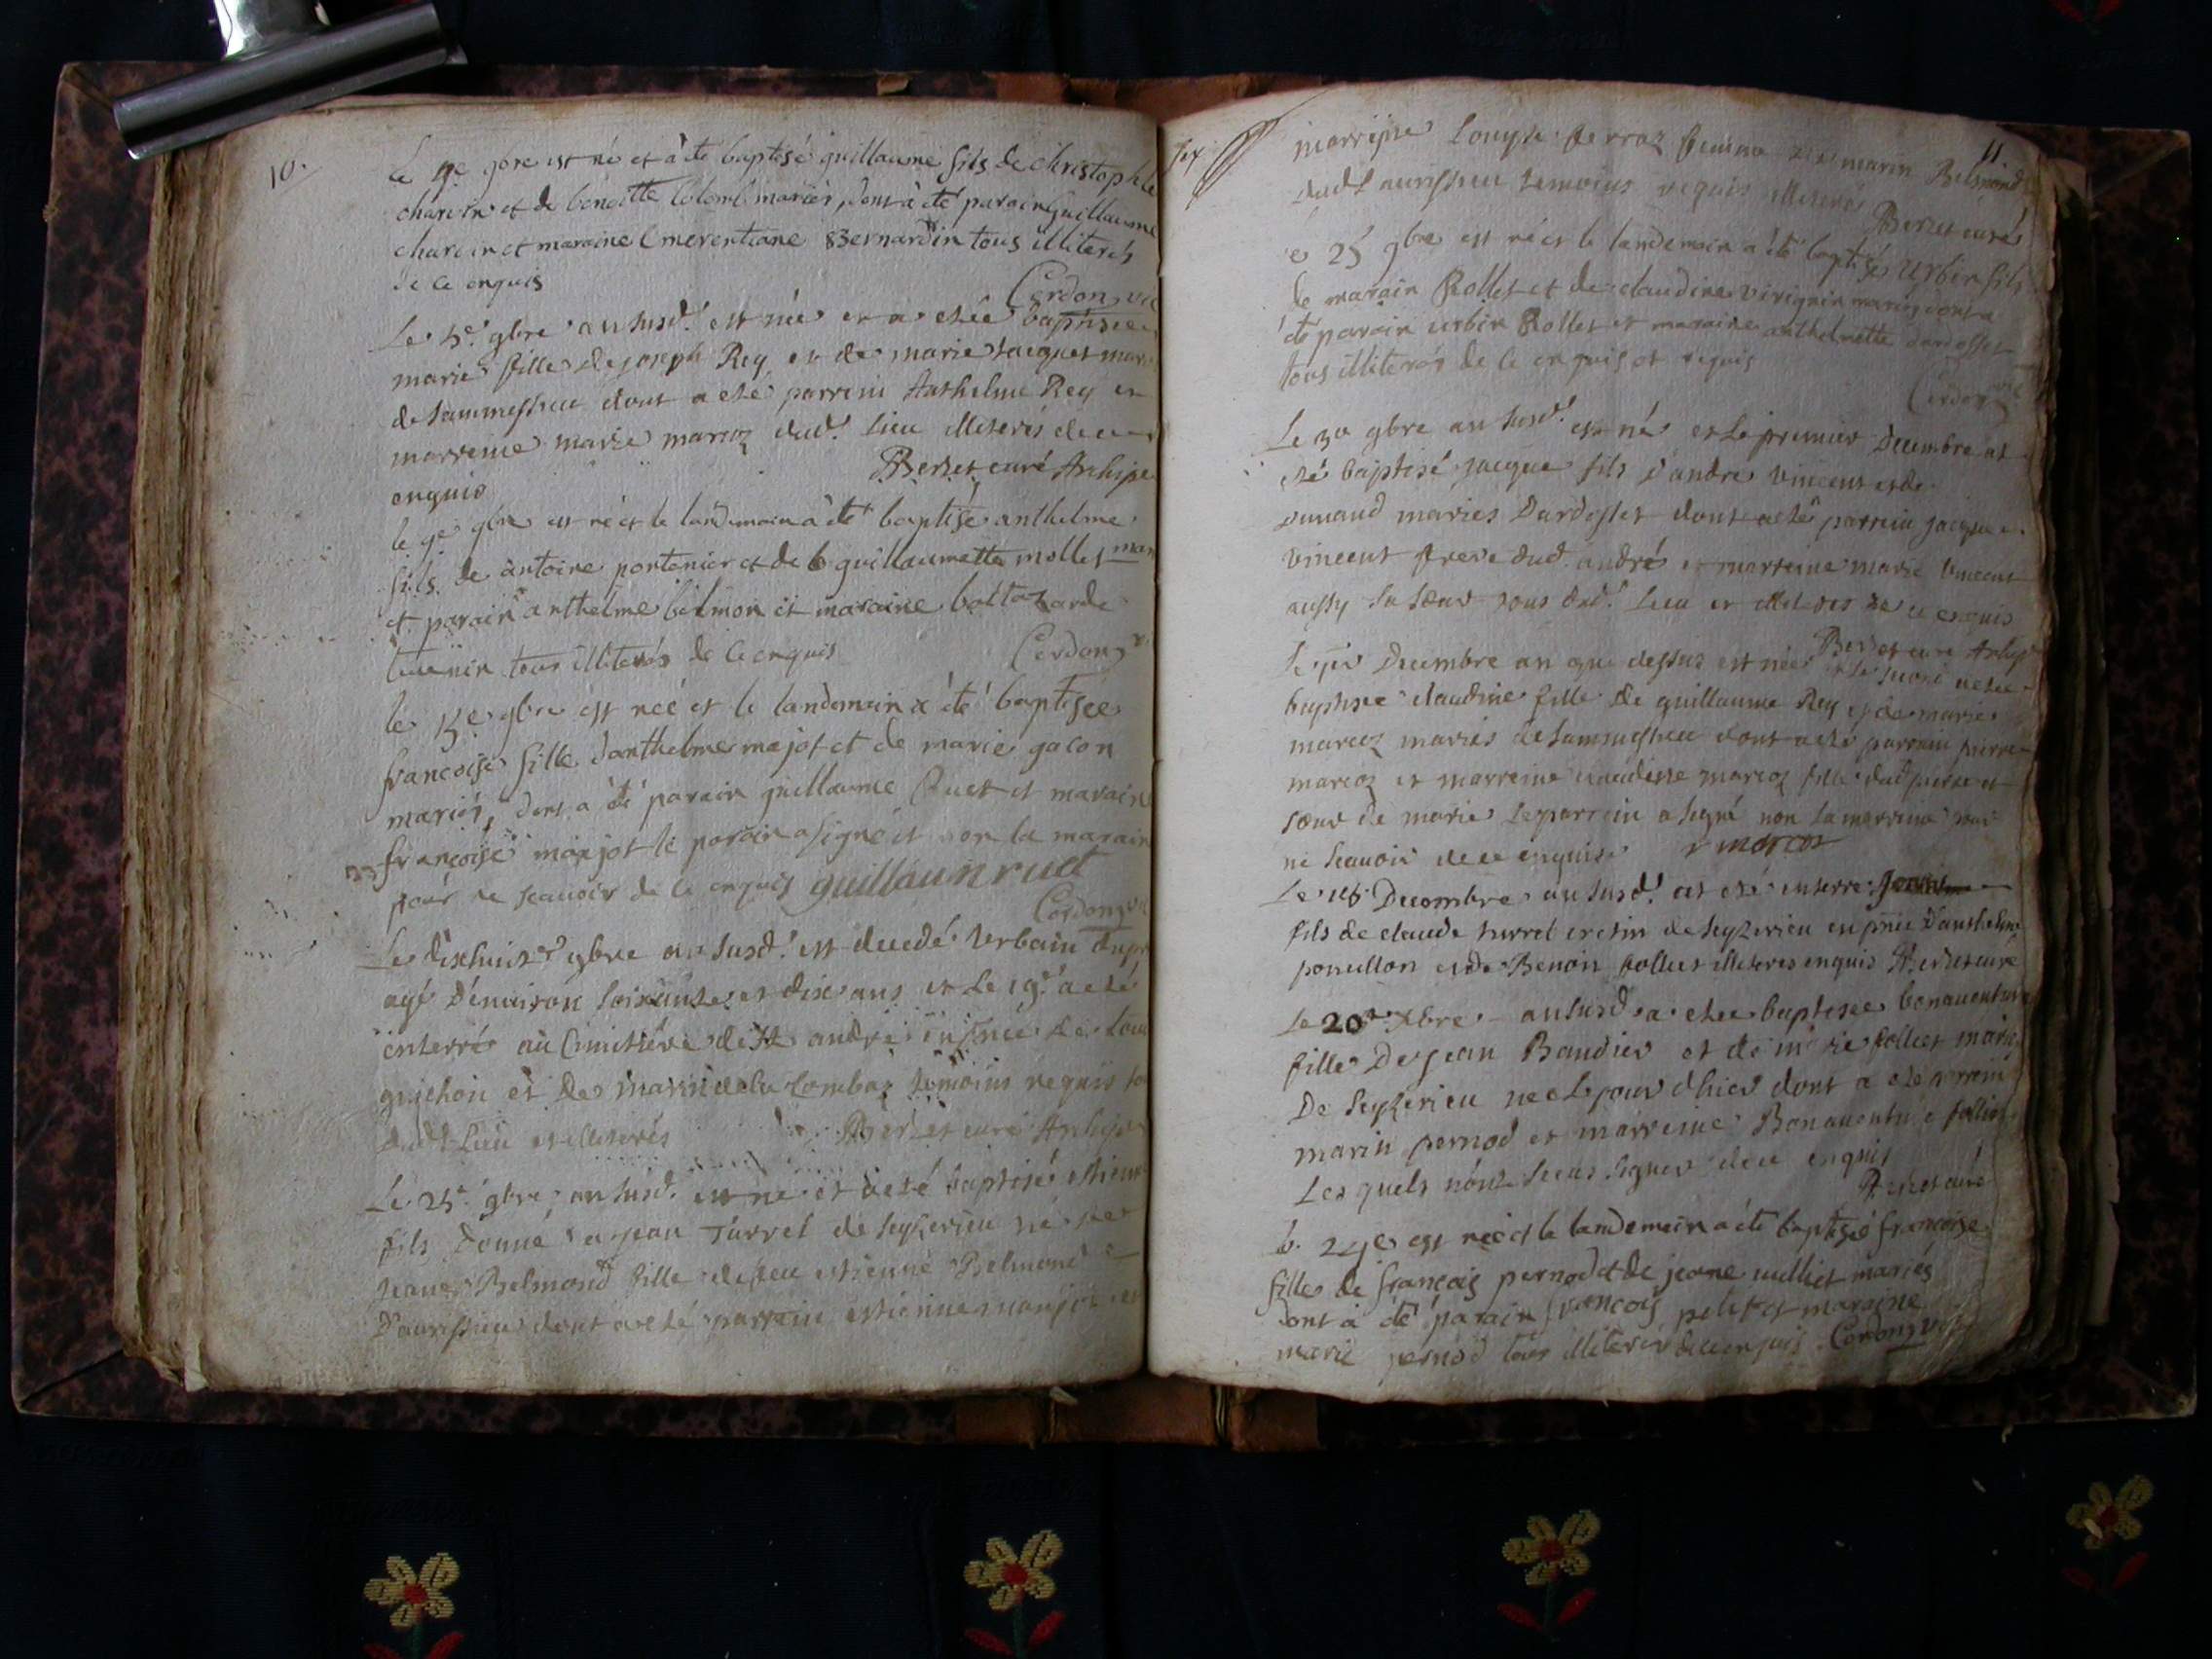 10.
Le 4e gbre est né et à été baptisé guillaume fils de christophle
charcin et de benoitte Colomb mariés, dont à été parain Guillaume
charcin et maraine Emerentiane Bernardin tous illiterés
de ce enquis
Cerdon, vic
Le 5e. gbre an susd.t est née et a estée baptisée
marie fille de joseph Rey et de marie Jacquet mari
de Sammessieu dont a esté parrein Anthelme Rey et
marreine marie marcoz dud.t lieu illiterés de ce
enquis
Berzet curé Archip
le 9e gbre est né et le landemain à été baptisé anthelme
fils de antoine portenier et de guillaumette mollet mar
et parain anthelme belmon et maraine baltazarde
tous illiterés de ce enquis
Cerdon, v
le 15e gbre est née et le landemain à été baptisée
francoise fille d'anthelme majot et de marie gacon
mariés, dont à été parain guillaume Ruet et maraine
françoise majot le parain a signé et non la marain
pour ne scauoir de ce enquis guillaum ruet
Cerdon, vic
Le dixhuit.e gbre an susd.t est decedé Urbain Dup
agé D'enuiron soixante et dix ans et Le 19.e a esté
enterré au Cimitiére de St andré en pnce de Lou
guichon et de marin de la Combaz temoins requis to
dud.t Lieu et illiterés Berzet curé Archip
Le 23.e gbre an susd.t est né et a esté baptisé estienne
fils Donné a jean Turrel de Seyzerieu né de
jeane Belmond fille de feu estienne Belmond
D'aurissieu dont a esté parrein estienne majot et
11.
marreine Louyse ferraz femme de marin Belmond
dud.t aurissieu temoins requis illiterés
Berzet curé
Le 25 gbre est né et le landemain a été baptisé Urbin fils
de marain Rollet et de claudine virignin mariés dont a
été parain urbin Rollet et maraine anthelmette dardosset
tous illiterés de ce enquis et requis
Cerdon, vic
Le 30 gbre an susd.t est né et Le premier Decembre at
esté baptisé jacque fils d'andre Vincent et de
mariés Dardosset dont a esté parrein jacque
Vincent frere dud. andré et marreine marie Vincent
aussy sa sœur tous dud.t Lieu et illiterés de ce enquis
Berzet curé Archip
Le 1er Decembre an que dessus est née et Le
baptisée claudine fille de guillaume Rey et de marie
marcoz mariés de Sammessieu dont a esté parrein pierre
marcoz et marreine claudine marcoz fille dud pierre et
sœur de marie Le parrein a signé non La marreine pour
ne scauoir de ce enquis marcoz
Le 18 Decembre an susd.t at esté enterré
fils de claude turrel cretin de Seyzerieu en pnce D'anthelme
ponullon et de Benoin follet illiterés enquis Berzet curé
Le 20e Xbre an susd a estee baptisee bonauenture
fille De jean Baudier et de marie follet mariés
De Seyzerieu nee Le jour d'hier dont a esté parrein
marin pernod et marreine Bonauenture folliet
Lesquels n'ont sceus signer de ce enquis
Berzet curé
le 24e est née et le landemain a été baptisé francoise
fille de françois pernod et de jeane mariés
dont à été parain françois pelet et maraine
marie pernod tous illiterés de ce enquis. Cerdon, vic